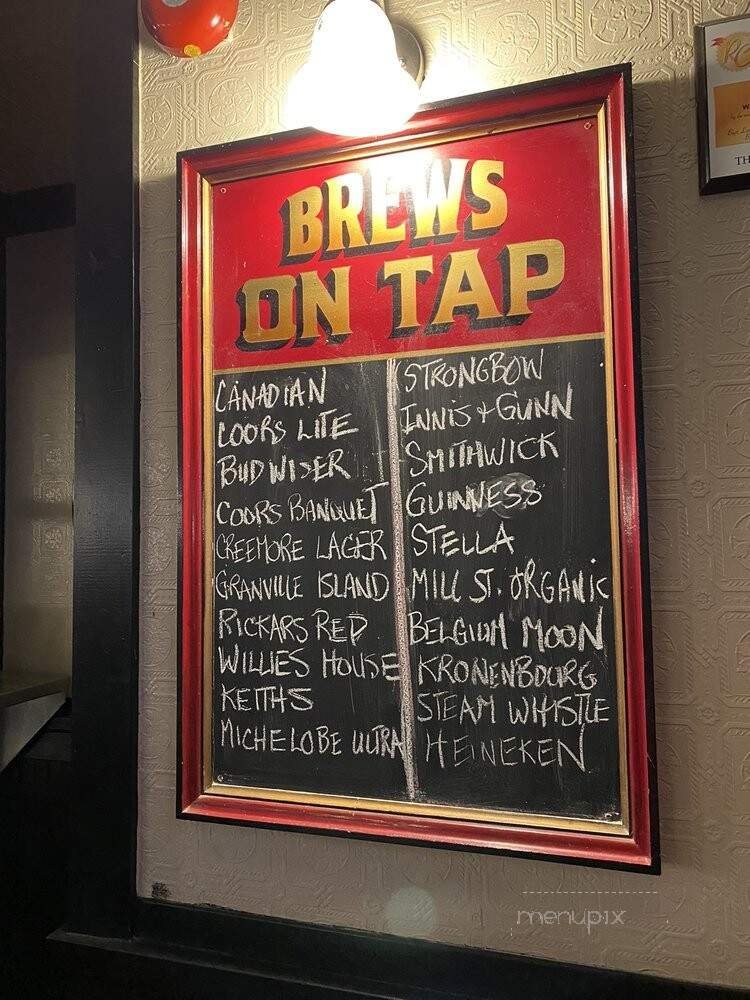 BREWS
ON TAP
CANADIAN
COORS LITE
BUDWISER
COORS BANQUET
CREEMORE LAGER
GRANVILLE ISLAND
RICKARS RED
WILLIES HOUSE
KEITHS
MICHELOBE ULTRA
STRONGBOW
INNIS + GUNN
SMITHWICK
GUINNESS
STELLA
MILL ST. ORGANIC
BELGIUM MOON
KRONENBOURG
STEAM WHISTLE
HEINEKEN
TH
menupix